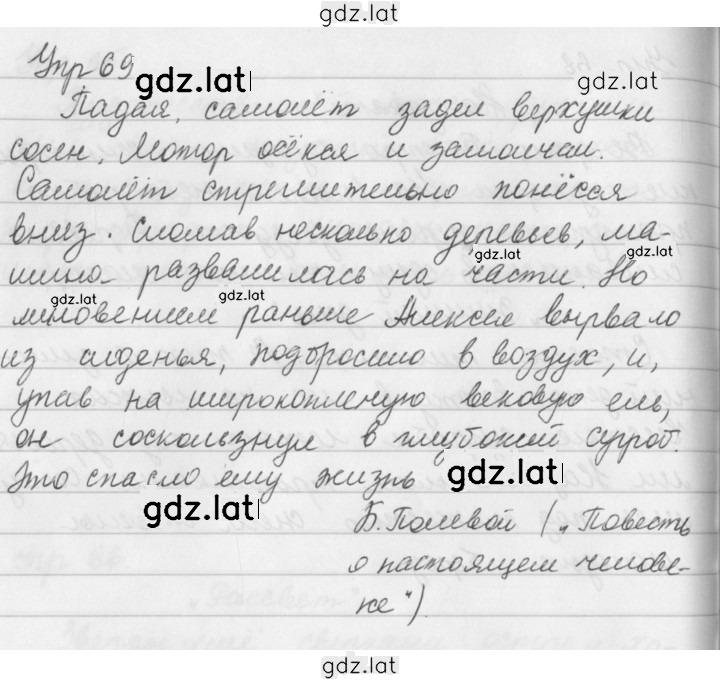 gdz.lat
Упр 69
gdz.lat
Падая, самолёт задел верхушки
сосен. Мотор осёкся и замолчал.
Самолёт стремительно понёсся
вниз. Сломав несколько деревьев, ма-
gdz.lat gdz.lat
шина развалилась на части. Но
gdz.lat gdz.lat
мгновением раньше Алексея вырвало
из сиденья, подбросило в воздух, и,
упав на широкоплечую вековую ель,
он соскользнул в глубокий сугроб.
Это спасло ему жизнь
gdz.lat gdz.lat
Б. Полевой („Повесть
о настоящем челове-
ке").
gdz.lat